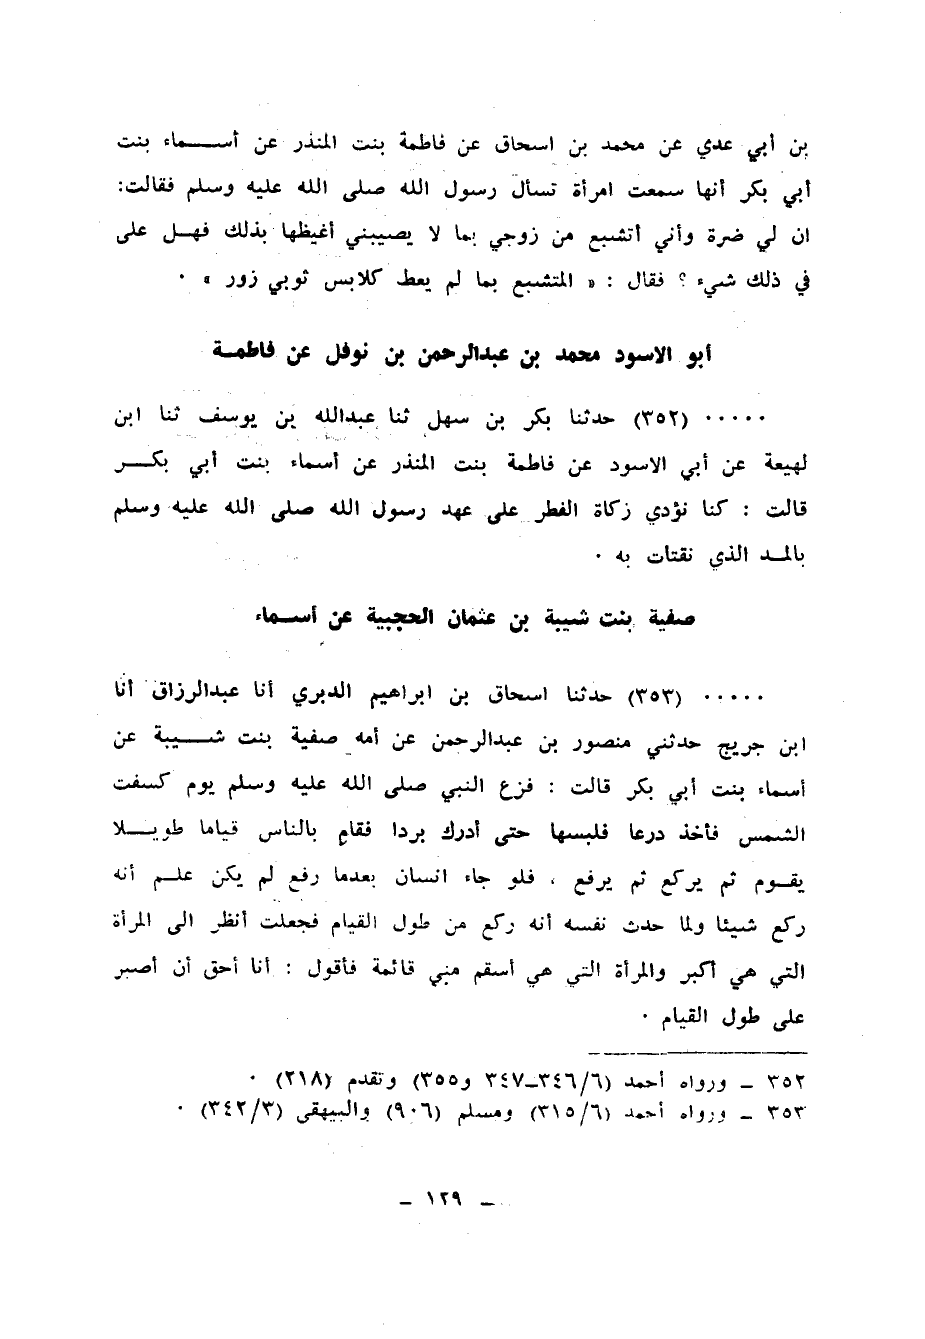 بن أبي عدي عن محمد بن اسحاق عن فاطمة بنت المنذر عن أسـماء بنت
أبي بكر أنها سمعت امرأة تسأل رسول الله صلى الله عليه وسلم فقالت:
ان لي ضرة وأني أتشبع من زوجي بما لا يصيبني أغيظها بذلك فهـل على
في ذلك شيء ؟ فقال : « المتشبع بما لم يعط كلابس ثوبي زور » ٠
أبو الاسود محمد بن عبدالرحمن بن نوفل عن فاطمـة
٠٠٠٠٠ (٣٥٢) حدثنا بكر بن سهل ثنا عبدالله بن يوسف ثنا ابن
لهيعة عن أبي الاسود عن فاطمة بنت المنذر عن أسماء بنت أبي بكـر
قالت : كنا نؤدي زكاة الفطر على عهد رسول الله صلى الله عليه وسلم
بالمـد الذي نقتات به ٠
صفية بنت شيبة بن عثمان الحجبية عن أسـماء
٠٠٠٠٠ (٣٥٣) حدثنا اسحاق بن ابراهيم الدبري أنا عبدالرزاق أنا
ابن جريج حدثني منصور بن عبدالرحمن عن أمه صفية بنت شـيبة عن
أسماء بنت أبي بكر قالت : فزع النبي صلى الله عليه وسلم يوم كسفت
الشمس فأخذ درعا فلبسها حتى أدرك بردا فقام بالناس قياما طويـلا
يقـوم ثم يركع ثم يرفع ، فلو جاء انسان بعدما رفع لم يكن علـم أنه
ركع شيئا ولما حدث نفسه أنه ركع من طول القيام فجعلت أنظر الى المرأة
التي هي أكبر والمرأة التي هي أسقم مني قائمة فأقول : أنا أحق أن أصبر
على طول القيام ٠
٣٥٢ ـ ورواه أحمد (٣٤٦/٦ـ٣٤٧ و٣٥٥) وتقدم (٢١٨) ٠
٣٥٣ ـ ورواه أحمد (٣١٥/٦) ومسلم (٩٠٦) والبيهقي (٣٤٢/٣) ٠
ـ ١٢٩ ـ